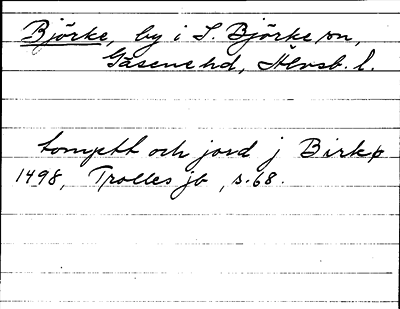 Björke, by i S. Björke sn,
Gäsene hd, Älvsb. l.
tomptt och jord j Birkø
1498, Trolles jb, s. 68.